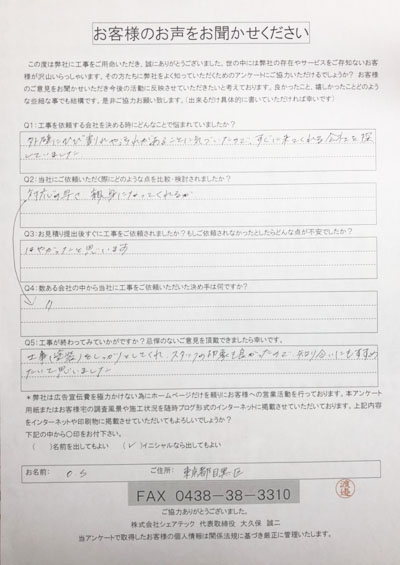 お客様のお声をお聞かせください
この度は弊社に工事をご用命いただき、誠にありがとうございました。世の中には弊社の存在やサービスをご存知ないお客様
が沢山いらっしゃいます。その方たちに弊社をよく知っていただくためのアンケートにご協力いただけるでしょうか？ お客様
のご意見をお聞かせいただき今後の活動に反映させていただきたいと考えております。良かったこと、嬉しかったことどのよう
な些細な事でも結構です。是非ご協力お願い致します。（出来るだけ具体的に書いていただければ幸いです）
Q1：工事を依頼する会社を決める時にどんなことで悩まれていましたか？
外壁にひび割れや汚れがあることに気づいたので、すぐに来てくれる会社を探
していました
Q2：当社にご依頼いただく際にどのような点を比較・検討されましたか？
対応の早さ 親身になってくれるか
Q3：お見積り提出後すぐに工事をご依頼されましたか？もしご依頼されなかったとしたらどんな点が不安でしたか？
はやかったと思います
Q4：数ある会社の中から当社に工事をご依頼いただいた決め手は何ですか？
〃
Q5：工事が終わってみていかがですか？忌憚のないご意見を頂戴できましたら幸いです。
工事（塗装）もしっかりとしてくれ、スタッフの印象も良かったので、知り合いにもすすめ
たいと思いました
＊弊社は広告宣伝費を極力かけない為にホームページだけを頼りにお客様への営業活動を行っております。本アンケート
用紙またはお客様宅の調査風景や施工状況を随時ブログ形式のインターネットに掲載させていただいております。上記内容
をインターネットや印刷物に掲載させていただいてもよろしいでしょうか？
下記の中から○印をお付下さい。
（ ）名前を出してもよい （✓）イニシャルなら出してもよい
お名前： O S ご住所： 東京都目黒区
FAX 0438-38-3310
渡邉
ご協力ありがとうございました。
株式会社シェアテック 代表取締役 大久保 誠二
当アンケートで取得したお客様の個人情報は関係法規に基づき厳正に管理いたします。